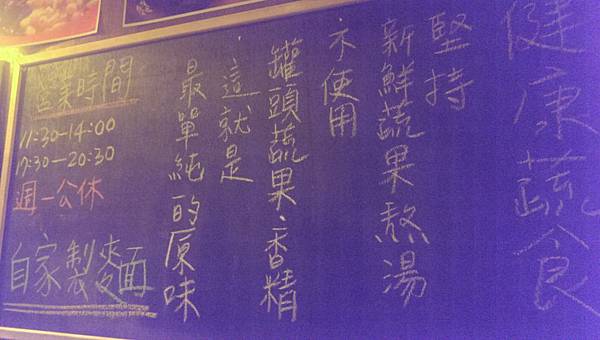 健康蔬食
堅持
新鮮蔬果熬湯
不使用
罐頭蔬果、香精
這就是
最單純的原味
營業時間
11:30-14:00
17:30-20:30
週一公休
自家製麵